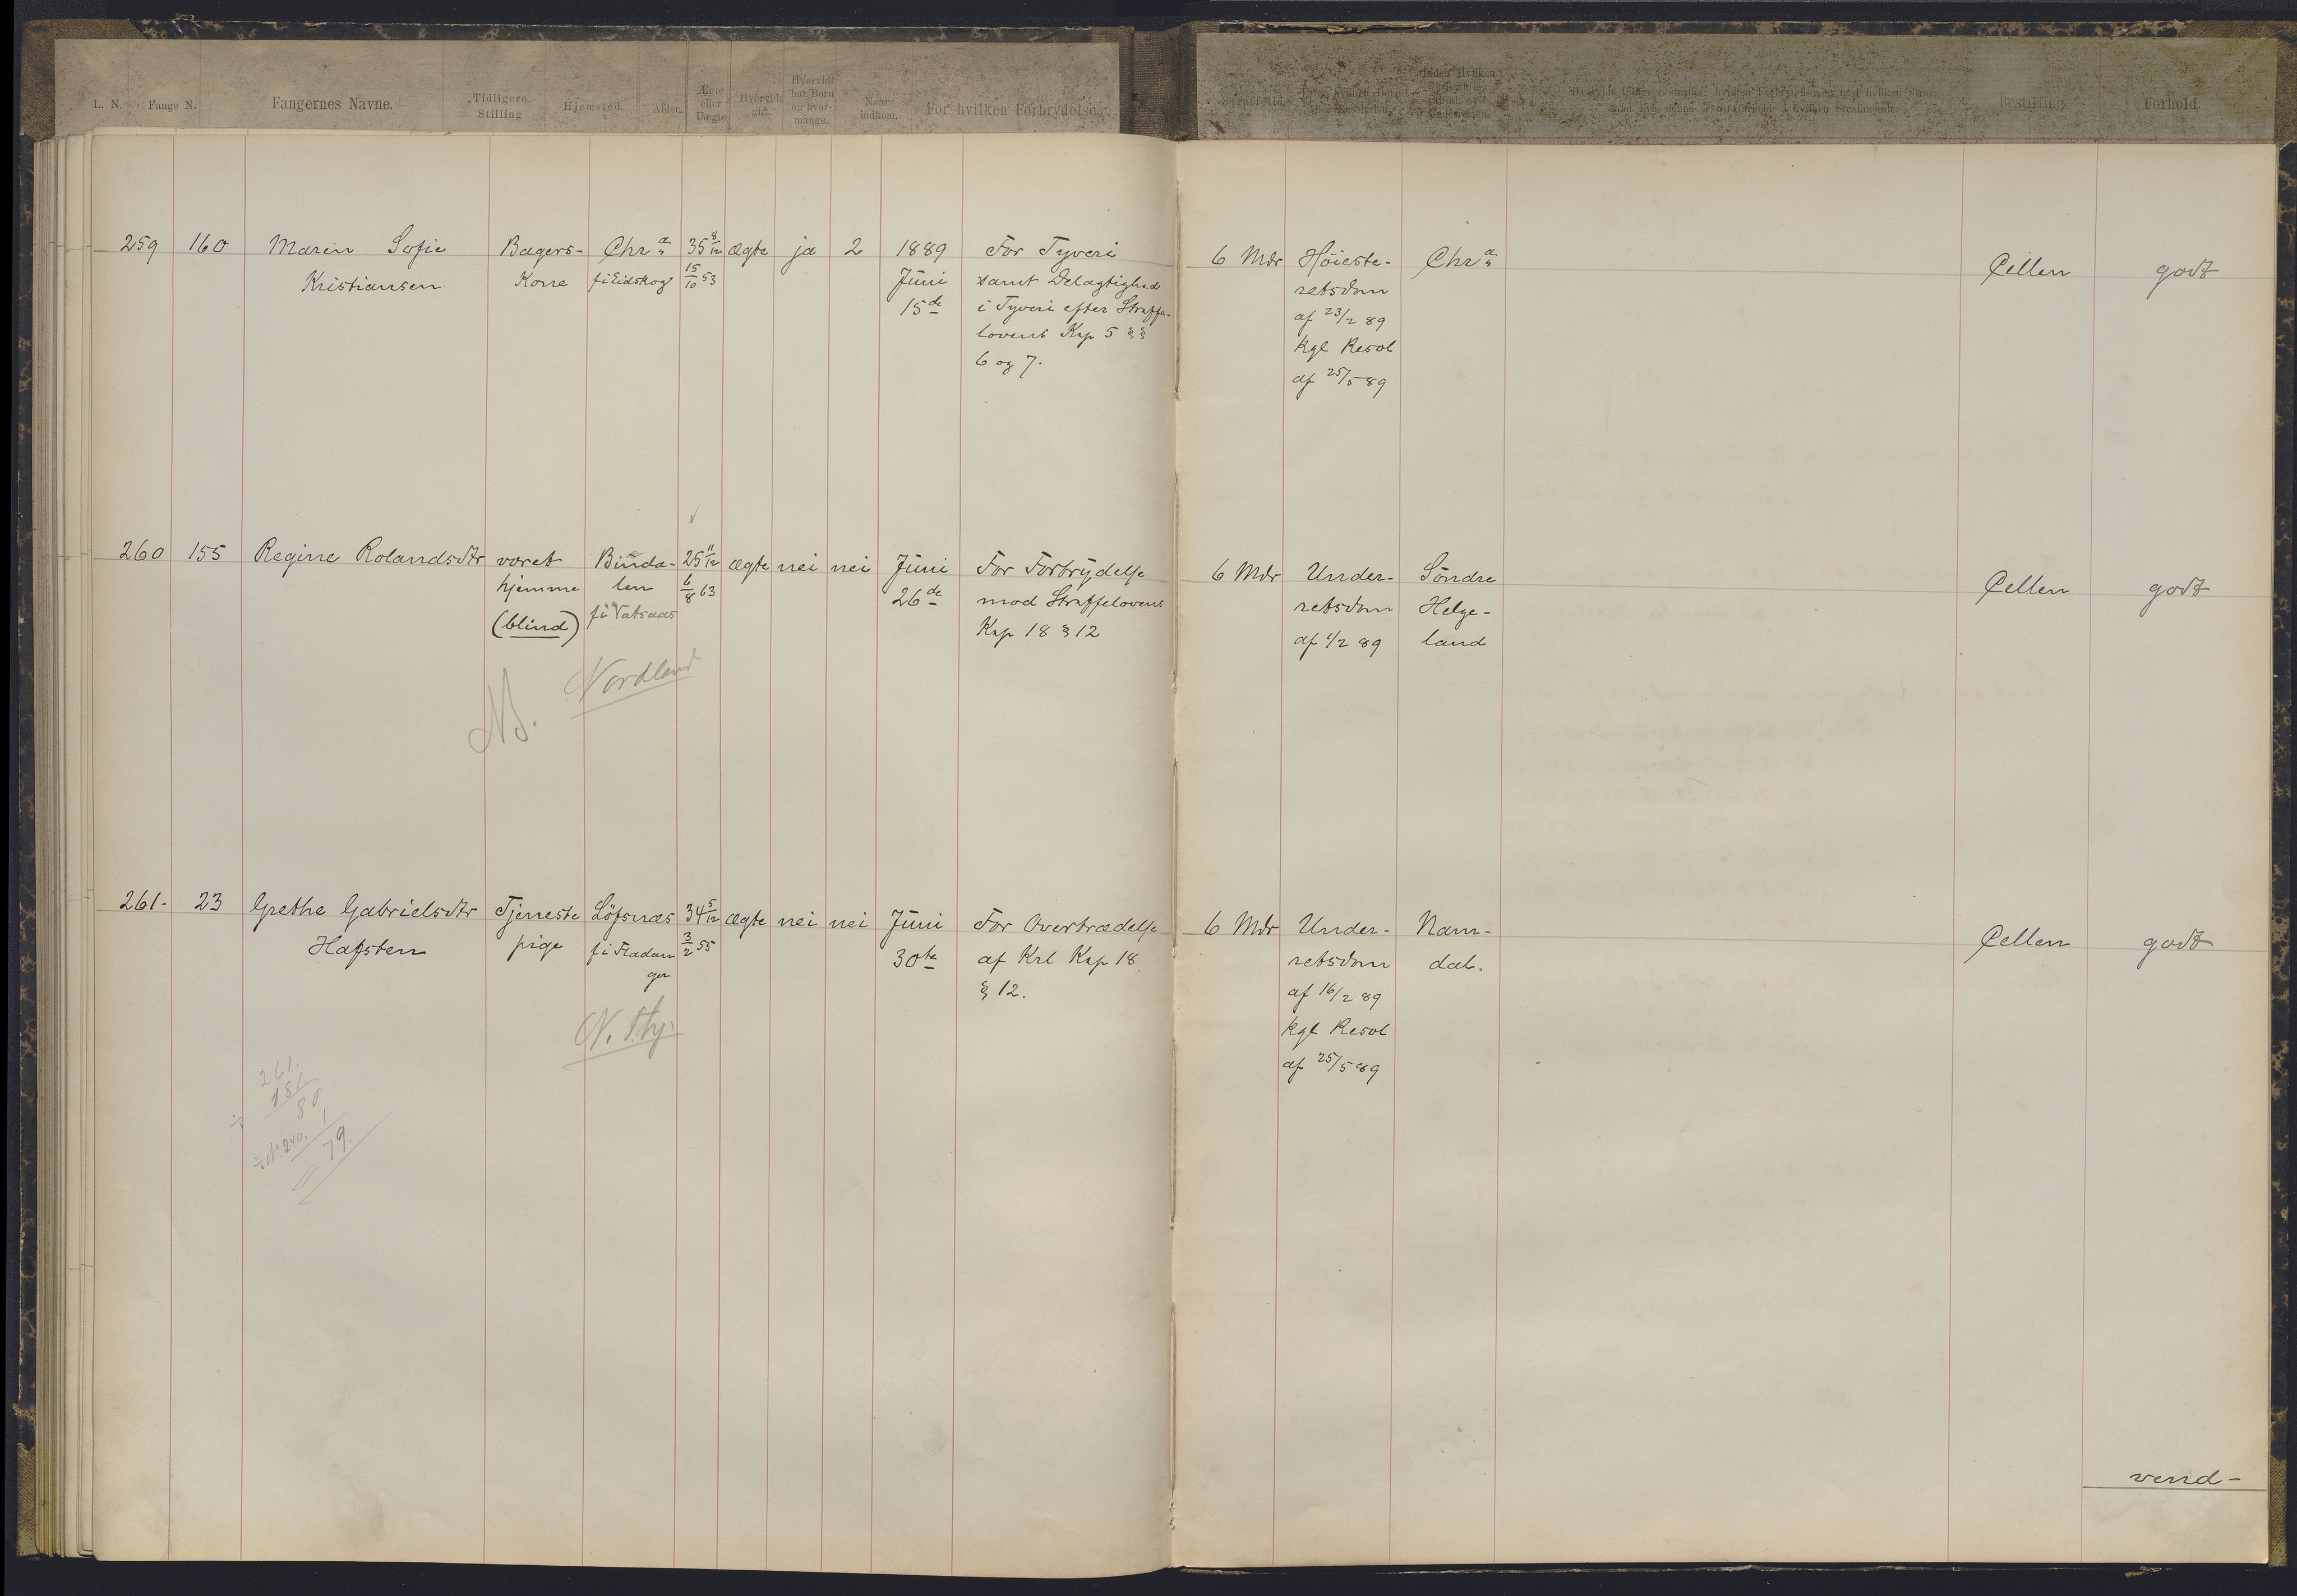 L. N. Fange N. Fangernes Navne. Tidligere Stilling Hjemsted. Alder. Ægte eller Uægte Hvorvidt gift. Hvorvidt har Børn og hvor- mange. Naar indkom. For hvilken Forbrydelse.
Bestilling. Forhold.
259 160 Maren Sofie Bagers- Chr a 35 8/12 ægte ja 2 1889 For Tyveri 6 Mdr Høieste- Chr a Cellen godt
Kristiansen Kone f i Eidskog 15/10 53 Juni samt Delagtighed retsdom
15de i Tyveri efter Straffe- af 23/2 89
lovens Kap 5 §§ kgl Resol
6 og 7. af 25/5 89
260 155 Regine Rolandsdtr været Binda- 25 11/12 ægte nei nei Juni For Forbrydelse 6 Mdr Under- Söndre Cellen godt
hjemme len 6/8 63 26de mod Straffelovens retsdom Helge-
(blind) f i Vatsaas Kap 18 § 12 af 1/2 89 land
Nordland
261- 23 Grethe Gabrielsdtr Tjeneste Löfsnæs 34 5/12 ægte nei nei Juni For Overtrædelse 6 Mdr Under- Nam- Cellen godt
Hafsten pige f i Fladan 3/2 55 30te af Krl Kap 18 retsdom dal.
ger § 12. af 16/2 89
kgl Resol
af 25/5 89
261.
181
80
÷ N. 240. 1
79.
vend-